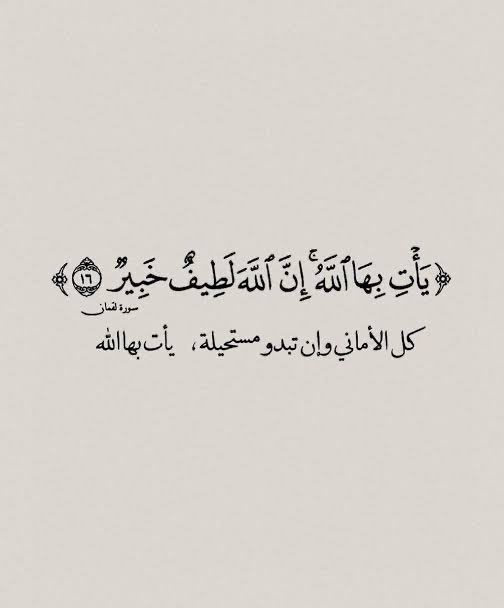 ﴿يَأْتِ بِهَا ٱللَّهُ ۚ إِنَّ ٱللَّهَ لَطِيفٌ خَبِيرٌ ١٦﴾
سورة لقمان
كل الأماني وإن تبدو مستحيلة، يأت بها الله